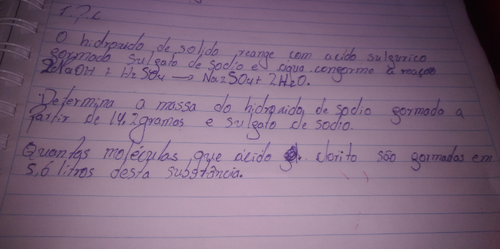 1.ª c
O hidroxido de solido reange com acido sulgurico
gormado sulgato de sodio e agua congorme a reaçao
2NaOH + H2SO4 → Na2SO4 + 2H2O.
Determina a massa do hidroxido, de sodio gormada a
partir de 14,2gramas e sulgato de sodio.
Quantas moléculas, que ácido clorito são gormadas em
5,6 litros desta substância.